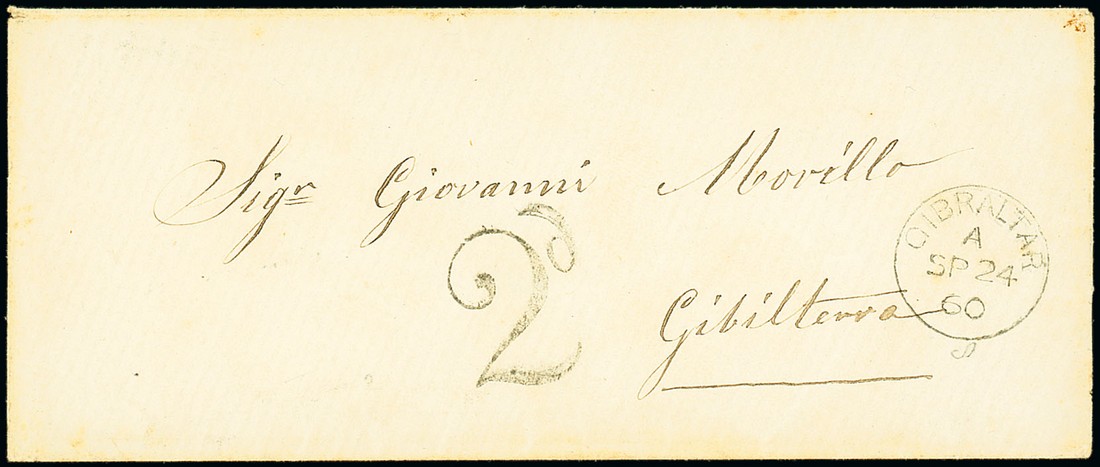 Sigr Giovanni Morillo
2d
Gibilterra
GIBRALTAR
A
SP 24
60
S